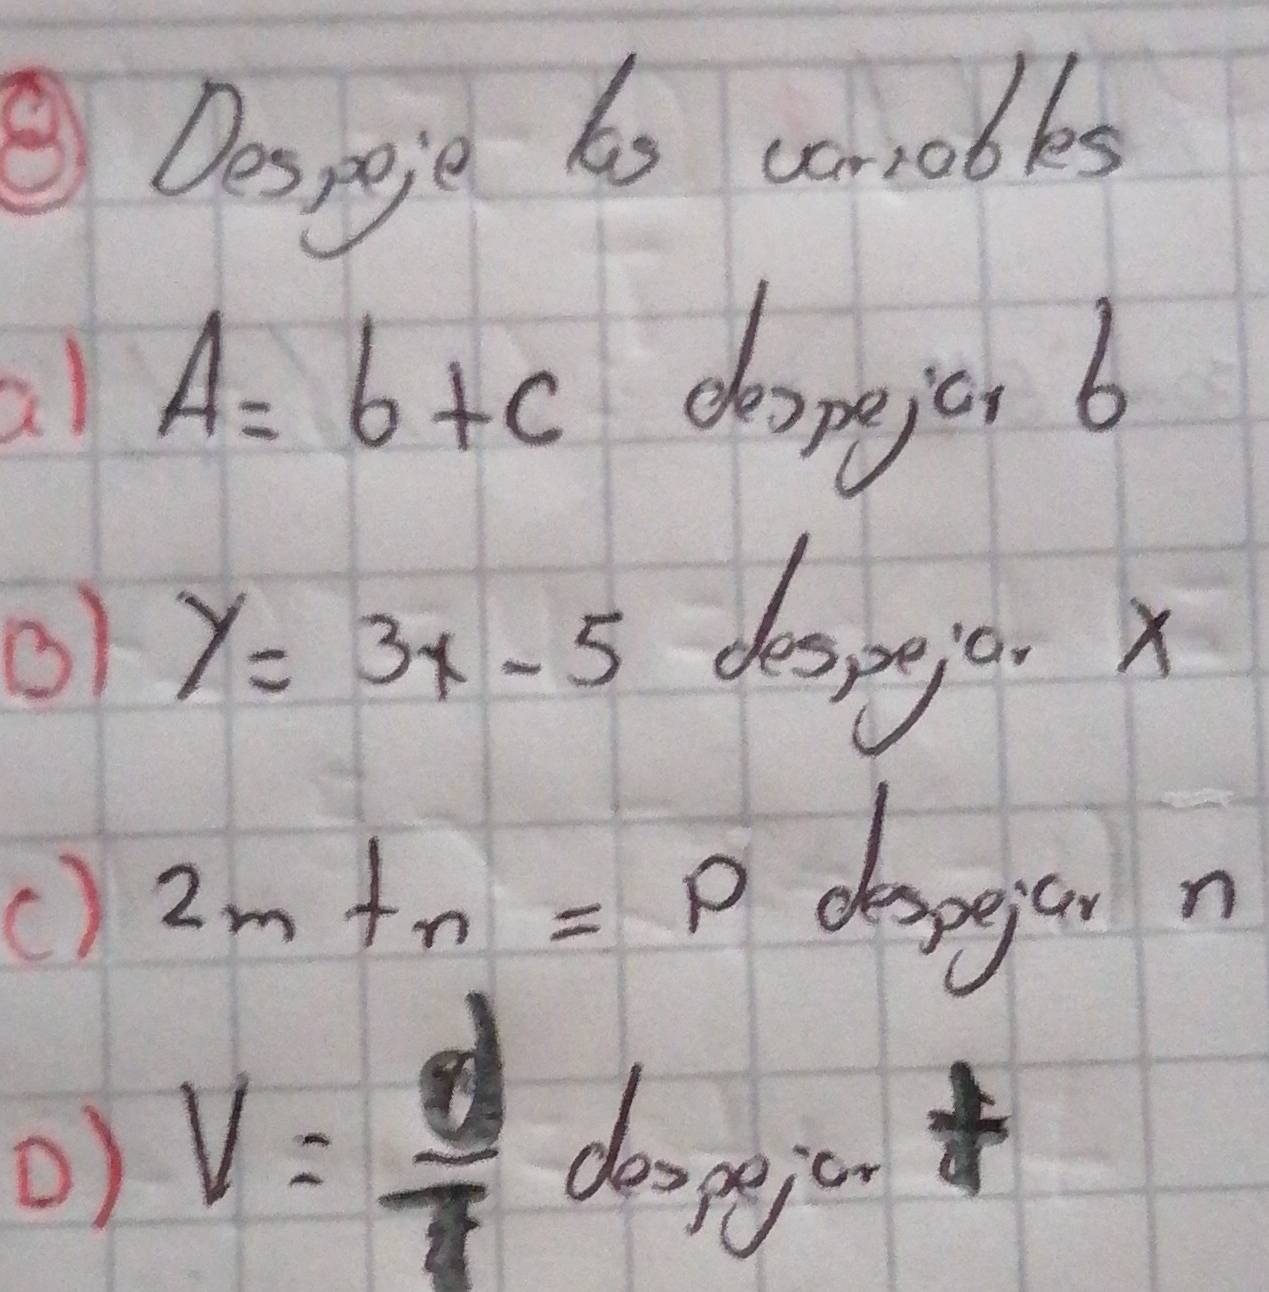 8 Despeje las variables
a) A = b + c despejar b
B) Y = 3x - 5 despejar x
C) 2m + n = P despejar n
D) V = d/t despejar t